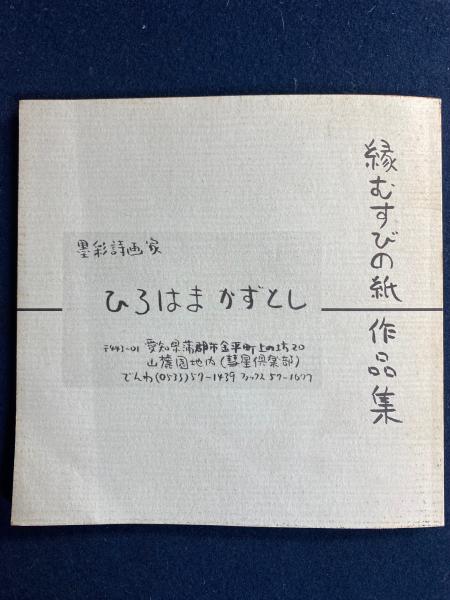 縁むすびの紙 作品集
墨彩詩画家
ひろはま かずとし
〒443-01 愛知県蒲郡市金平町上の坊20
山荘園地内(彗星倶楽部)
でんわ(0533)57-1439 ファックス 57-1677